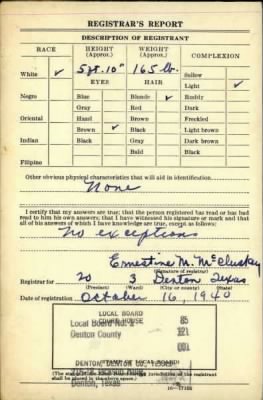 REGISTRAR'S REPORT
DESCRIPTION OF REGISTRANT
RACE HEIGHT (Approx.) WEIGHT (Approx.) COMPLEXION
White ✓ 5 ft. 10" 165 lb. Sallow
EYES HAIR Light ✓
Negro Blue Blonde ✓ Ruddy
Gray Red Dark
Oriental Hazel Brown Freckled
Brown ✓ Black Light brown
Indian Black Gray Dark brown
Bald Black
Filipino
Other obvious physical characteristics that will aid in identification
None
I certify that my answers are true; that the person registered has read or has had
read to him his own answers; that I have witnessed his signature or mark and that
all of his answers of which I have knowledge are true, except as follows:
No exceptions
Ernestine M. McCluskey
(Signature of registrar)
Registrar for 20 3 Denton Texas
(Precinct) (Ward) (City or county) (State)
Date of registration October 16, 1940
LOCAL BOARD
HOUSE 85
Local Board No. 121
Denton County 001
DENTON, DENTON CO., TEXAS
(The stamp of the Local Board
shall be placed in the above space.)
Denton, Texas